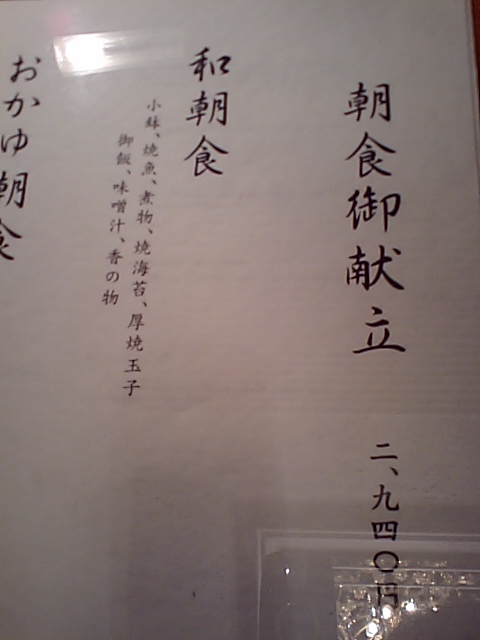 朝食御献立 二、九四〇円
和朝食
小鉢、焼魚、煮物、焼海苔、厚焼玉子
御飯、味噌汁、香の物
おかゆ朝食